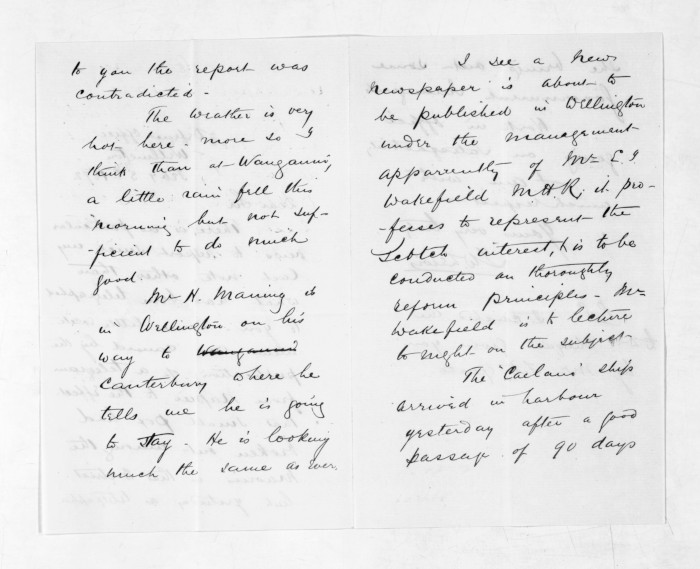 to you the report was
contradicted -
The weather is very
hot here - more so I
think than at Wanganui,
a little rain fell this
morning but not suf-
-ficient to do much
good.
Mr H. Maning is
in Wellington on his
way to Wanganui
Canterbury where he
tells me he is going
to stay - He is looking
much the same as ever.
I see a New
newspaper is about to
be published in Wellington
under the management
apparently of Mr E J
Wakefield M.H.R; it pro-
-fesses to represent the
Scotch interest, & is to be
conducted on thoroughly
reform principles - Mr
Wakefield is to lecture
to night on the subject -
The ship
arrived in harbour
yesterday after a good
passage of 90 days